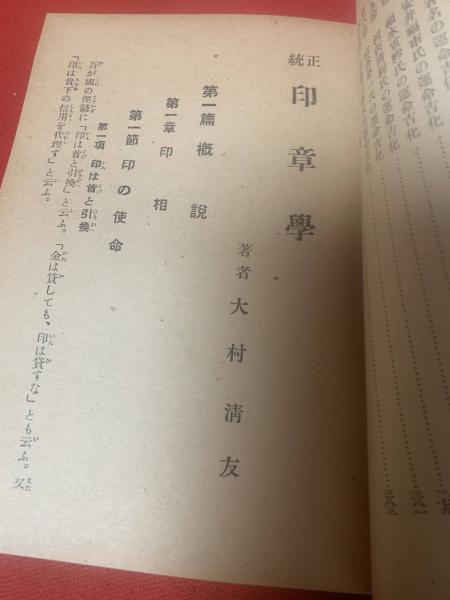 の運命吉化
氏の運命吉化
氏の運命吉化
氏の運命吉化
正統 印章學
著者 大村清友
第一篇 概說
第一章 印相
第一節 印の使命
第一項 印は首と引換
吾が國の俚諺に「印は首と引換」と云ふ。「金は貸しても、印は貸すな」とも云ふ。又
「印は貴下の信用を代理す」と云ふ。